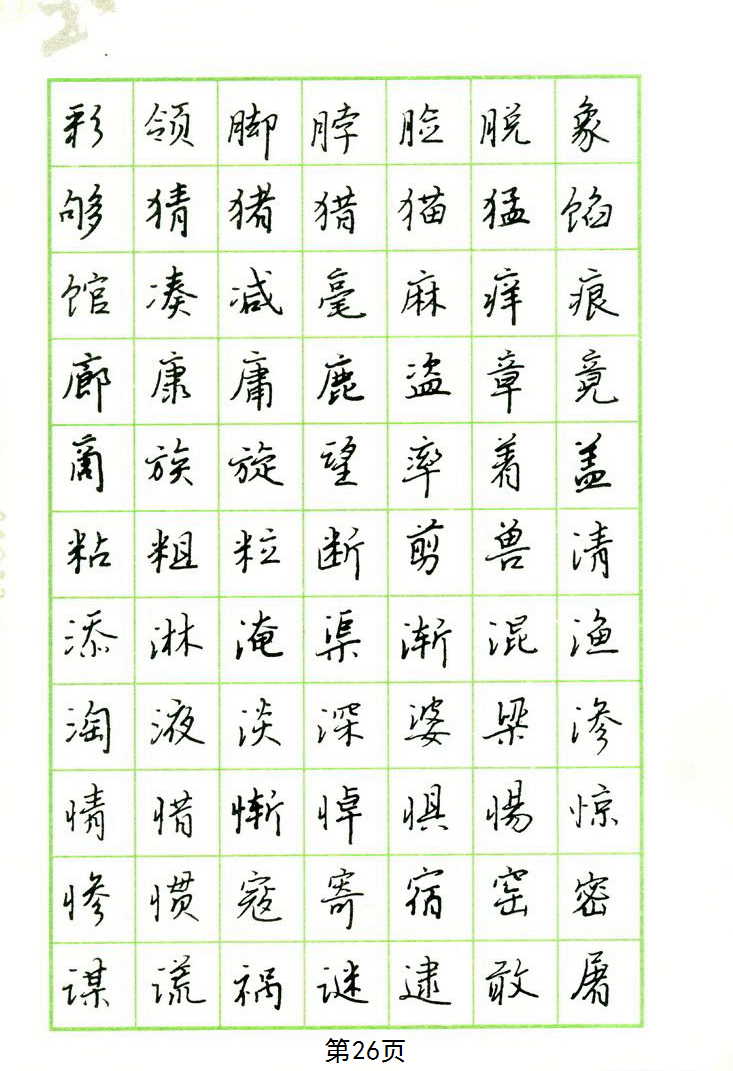 彩领脚脖脸脱象
够猜猪猎猫猛馅
馆凑减毫麻痒痕
廊康庸鹿盗章竟
商族旋望率着盖
粘粗粒断剪兽清
添淋淹渠渐混渔
淘液淡深婆梁渗
情惜惭悼惧惕惊
惨惯寇寄宿窑密
谋谎祸谜逮敢屠
第26页